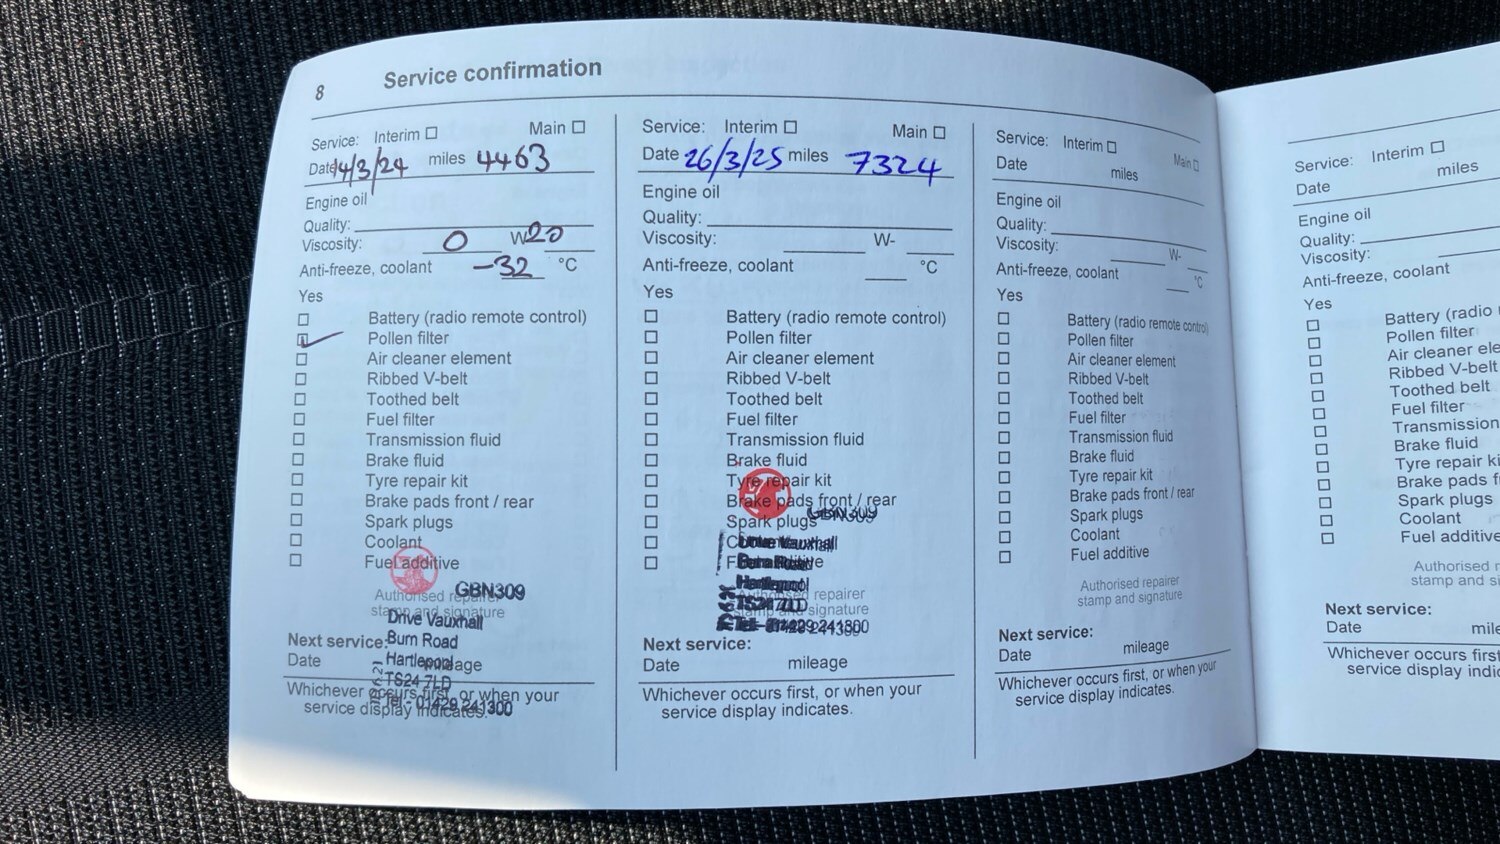 8
Service confirmation
Service: Interim ☐ Main ☐
Date 14/3/24 miles 4463
Engine oil
Quality:
Viscosity: 0 W 20
Anti-freeze, coolant -32 °C
Yes
Battery (radio remote control)
Pollen filter
Air cleaner element
Ribbed V-belt
Toothed belt
Fuel filter
Transmission fluid
Brake fluid
Tyre repair kit
Brake pads front / rear
Spark plugs
Coolant
Fuel additive
GBN309
Authorised repairer
stamp and signature
Drive Vauxhall
Burn Road
Hartlepool
TS24 7LD
Tel - 01429 241300
Next service:
Date mileage
Whichever occurs first, or when your
service display indicates.
Service: Interim ☐ Main ☐
Date 26/3/25 miles 7324
Engine oil
Quality:
Viscosity: W-
Anti-freeze, coolant °C
Yes
Battery (radio remote control)
Pollen filter
Air cleaner element
Ribbed V-belt
Toothed belt
Fuel filter
Transmission fluid
Brake fluid
Tyre repair kit
Brake pads front / rear
GBN309
Spark plugs
Vauxhall
Hartlepool
Authorised repairer
TS24 7LD
stamp and signature
Next service:
Date mileage
Whichever occurs first, or when your
service display indicates.
Service: Interim ☐ Main ☐
Date miles
Engine oil
Quality:
Viscosity: W-
Anti-freeze, coolant °C
Yes
Battery (radio remote control)
Pollen filter
Air cleaner element
Ribbed V-belt
Toothed belt
Fuel filter
Transmission fluid
Brake fluid
Tyre repair kit
Brake pads front / rear
Spark plugs
Coolant
Fuel additive
Authorised repairer
stamp and signature
Next service:
Date mileage
Whichever occurs first, or when your
service display indicates.
Service: Interim ☐
Date miles
Engine oil
Quality:
Viscosity:
Anti-freeze, coolant
Yes
Battery (radio
Pollen filter
Air cleaner ele
Ribbed V-belt
Toothed belt
Fuel filter
Transmission
Brake fluid
Tyre repair ki
Brake pads f
Spark plugs
Coolant
Fuel additive
Authorised
stamp and si
Next service:
Date mile
Whichever occurs firs
service display indic